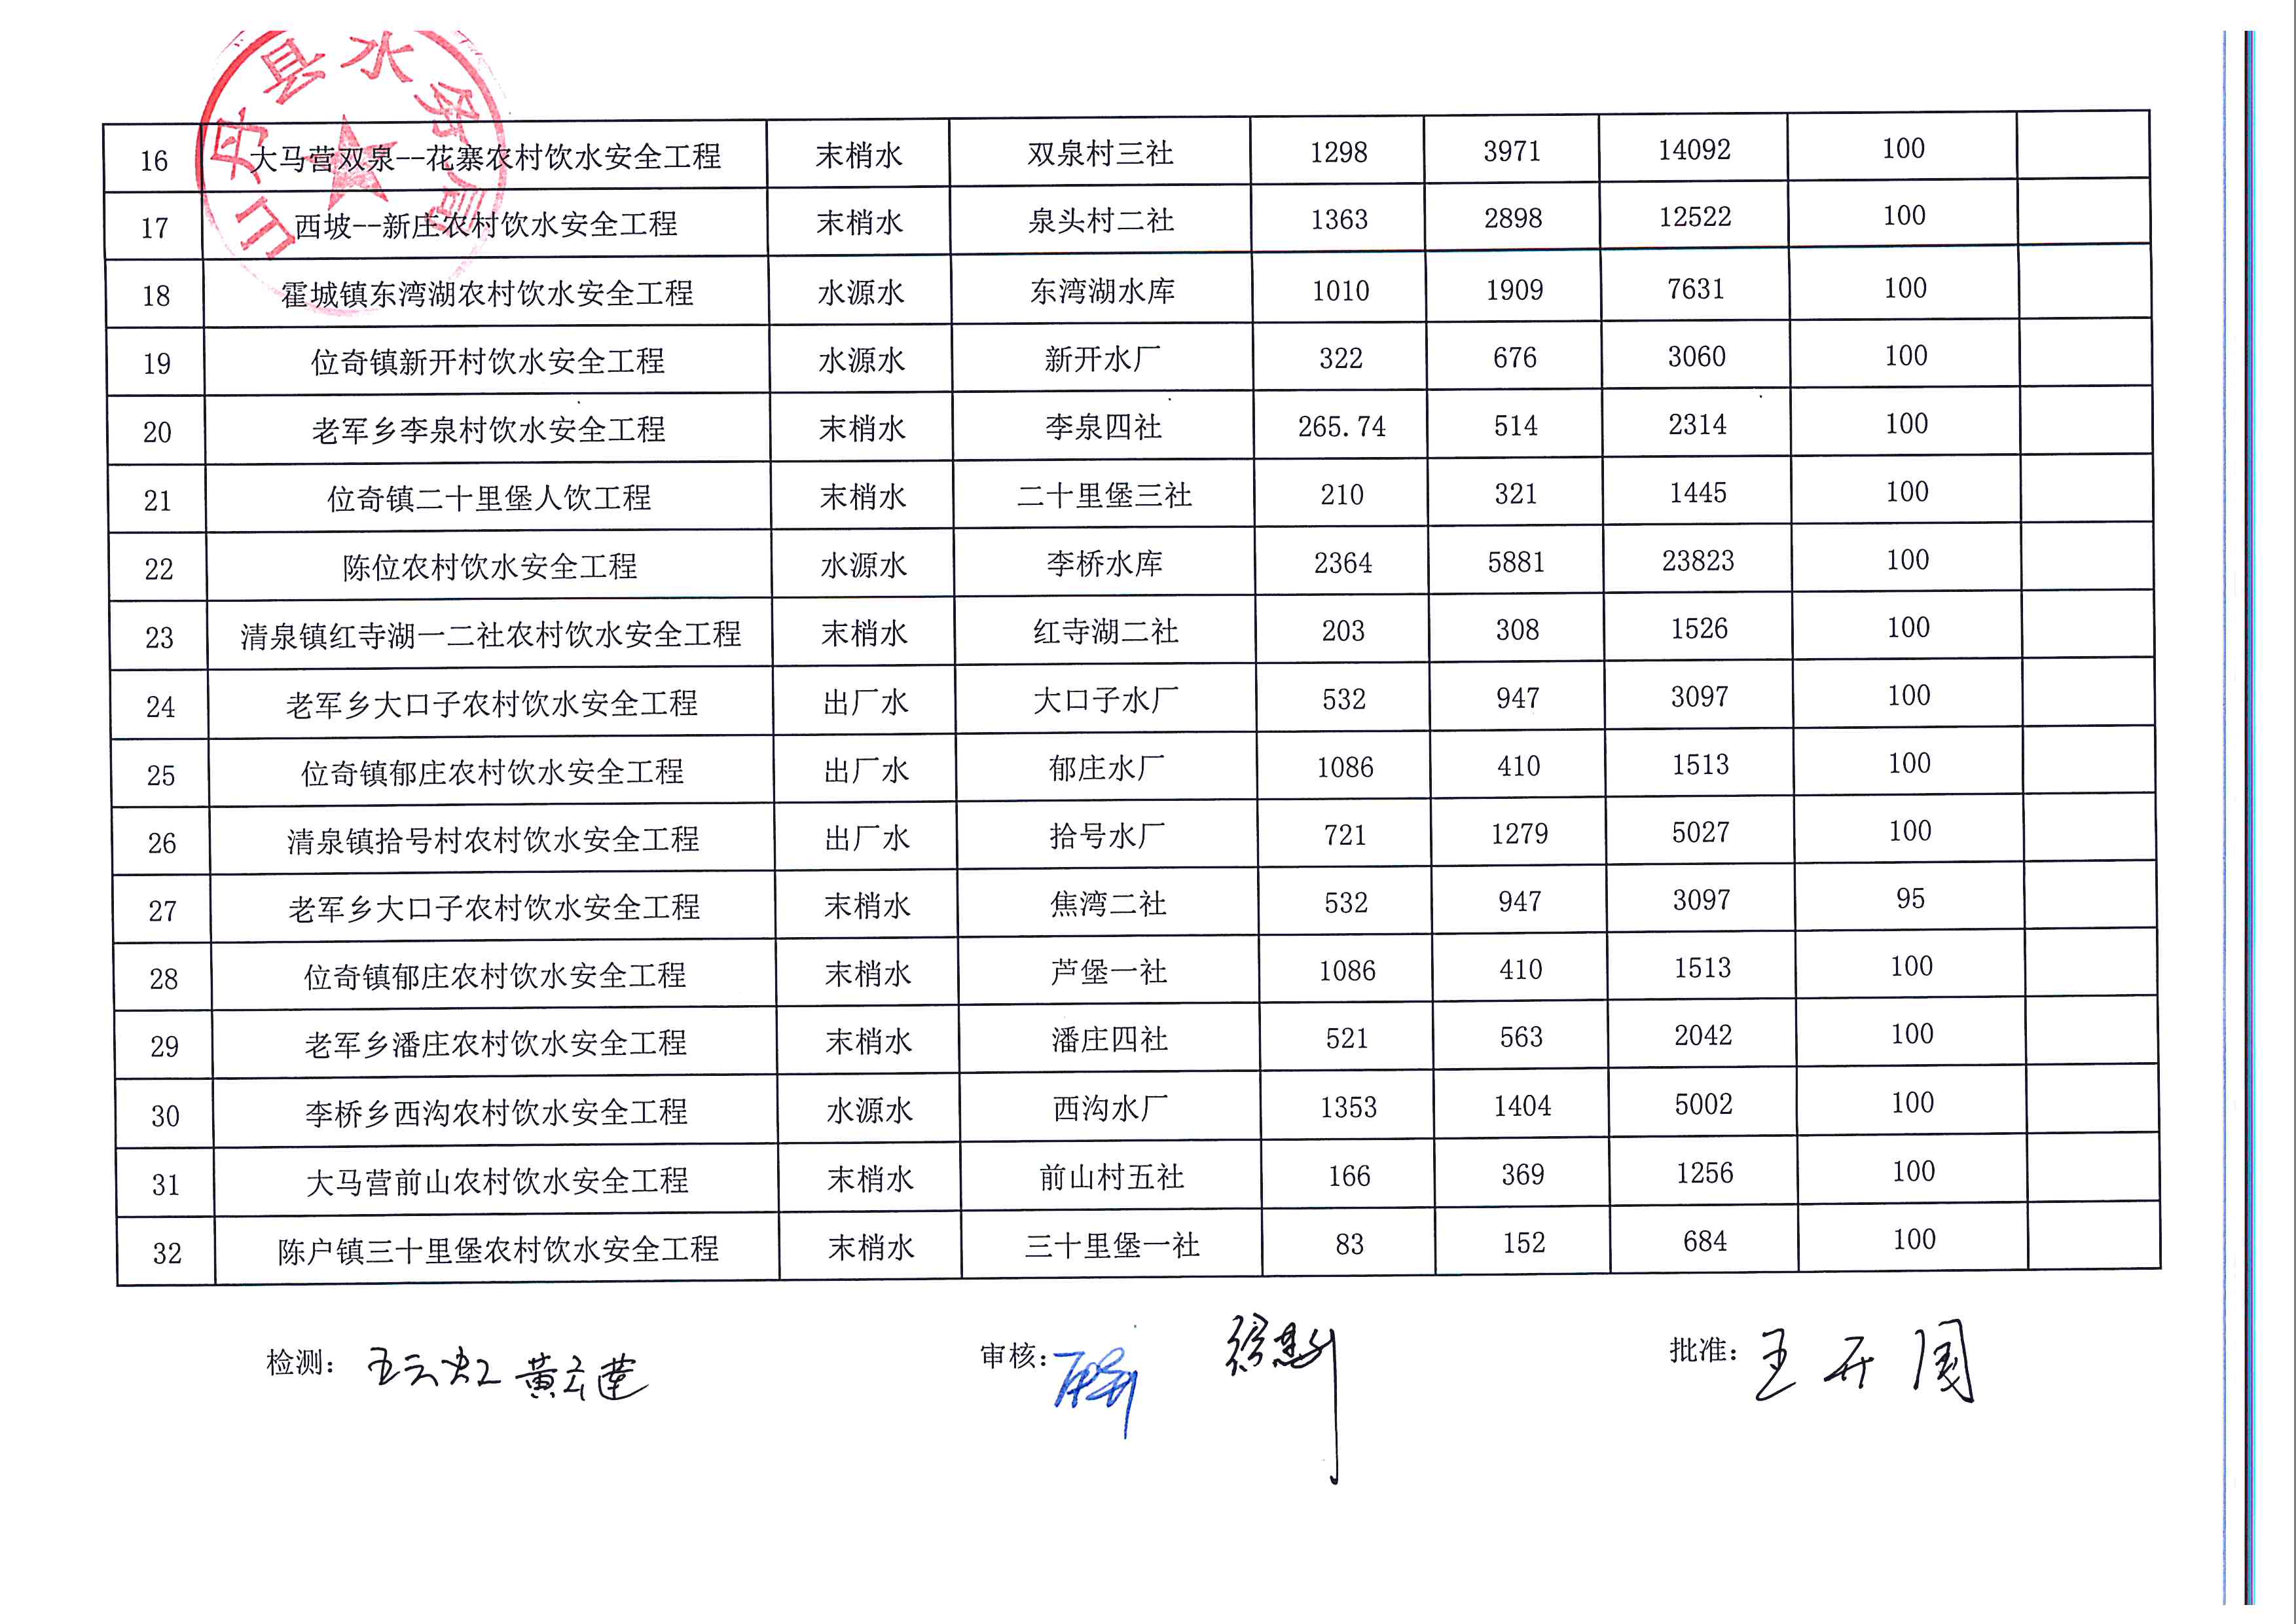 山丹县水务局
16 大马营双泉--花寨农村饮水安全工程 末梢水 双泉村三社 1298 3971 14092 100
17 西坡--新庄农村饮水安全工程 末梢水 泉头村二社 1363 2898 12522 100
18 霍城镇东湾湖农村饮水安全工程 水源水 东湾湖水库 1010 1909 7631 100
19 位奇镇新开村饮水安全工程 水源水 新开水厂 322 676 3060 100
20 老军乡李泉村饮水安全工程 末梢水 李泉四社 265.74 514 2314 100
21 位奇镇二十里堡人饮工程 末梢水 二十里堡三社 210 321 1445 100
22 陈位农村饮水安全工程 水源水 李桥水库 2364 5881 23823 100
23 清泉镇红寺湖一二社农村饮水安全工程 末梢水 红寺湖二社 203 308 1526 100
24 老军乡大口子农村饮水安全工程 出厂水 大口子水厂 532 947 3097 100
25 位奇镇郁庄农村饮水安全工程 出厂水 郁庄水厂 1086 410 1513 100
26 清泉镇拾号村农村饮水安全工程 出厂水 拾号水厂 721 1279 5027 100
27 老军乡大口子农村饮水安全工程 末梢水 焦湾二社 532 947 3097 95
28 位奇镇郁庄农村饮水安全工程 末梢水 芦堡一社 1086 410 1513 100
29 老军乡潘庄农村饮水安全工程 末梢水 潘庄四社 521 563 2042 100
30 李桥乡西沟农村饮水安全工程 水源水 西沟水厂 1353 1404 5002 100
31 大马营前山农村饮水安全工程 末梢水 前山村五社 166 369 1256 100
32 陈户镇三十里堡农村饮水安全工程 末梢水 三十里堡一社 83 152 684 100
检测: 王云虹 黄云莲 审核: 批准: 王开国